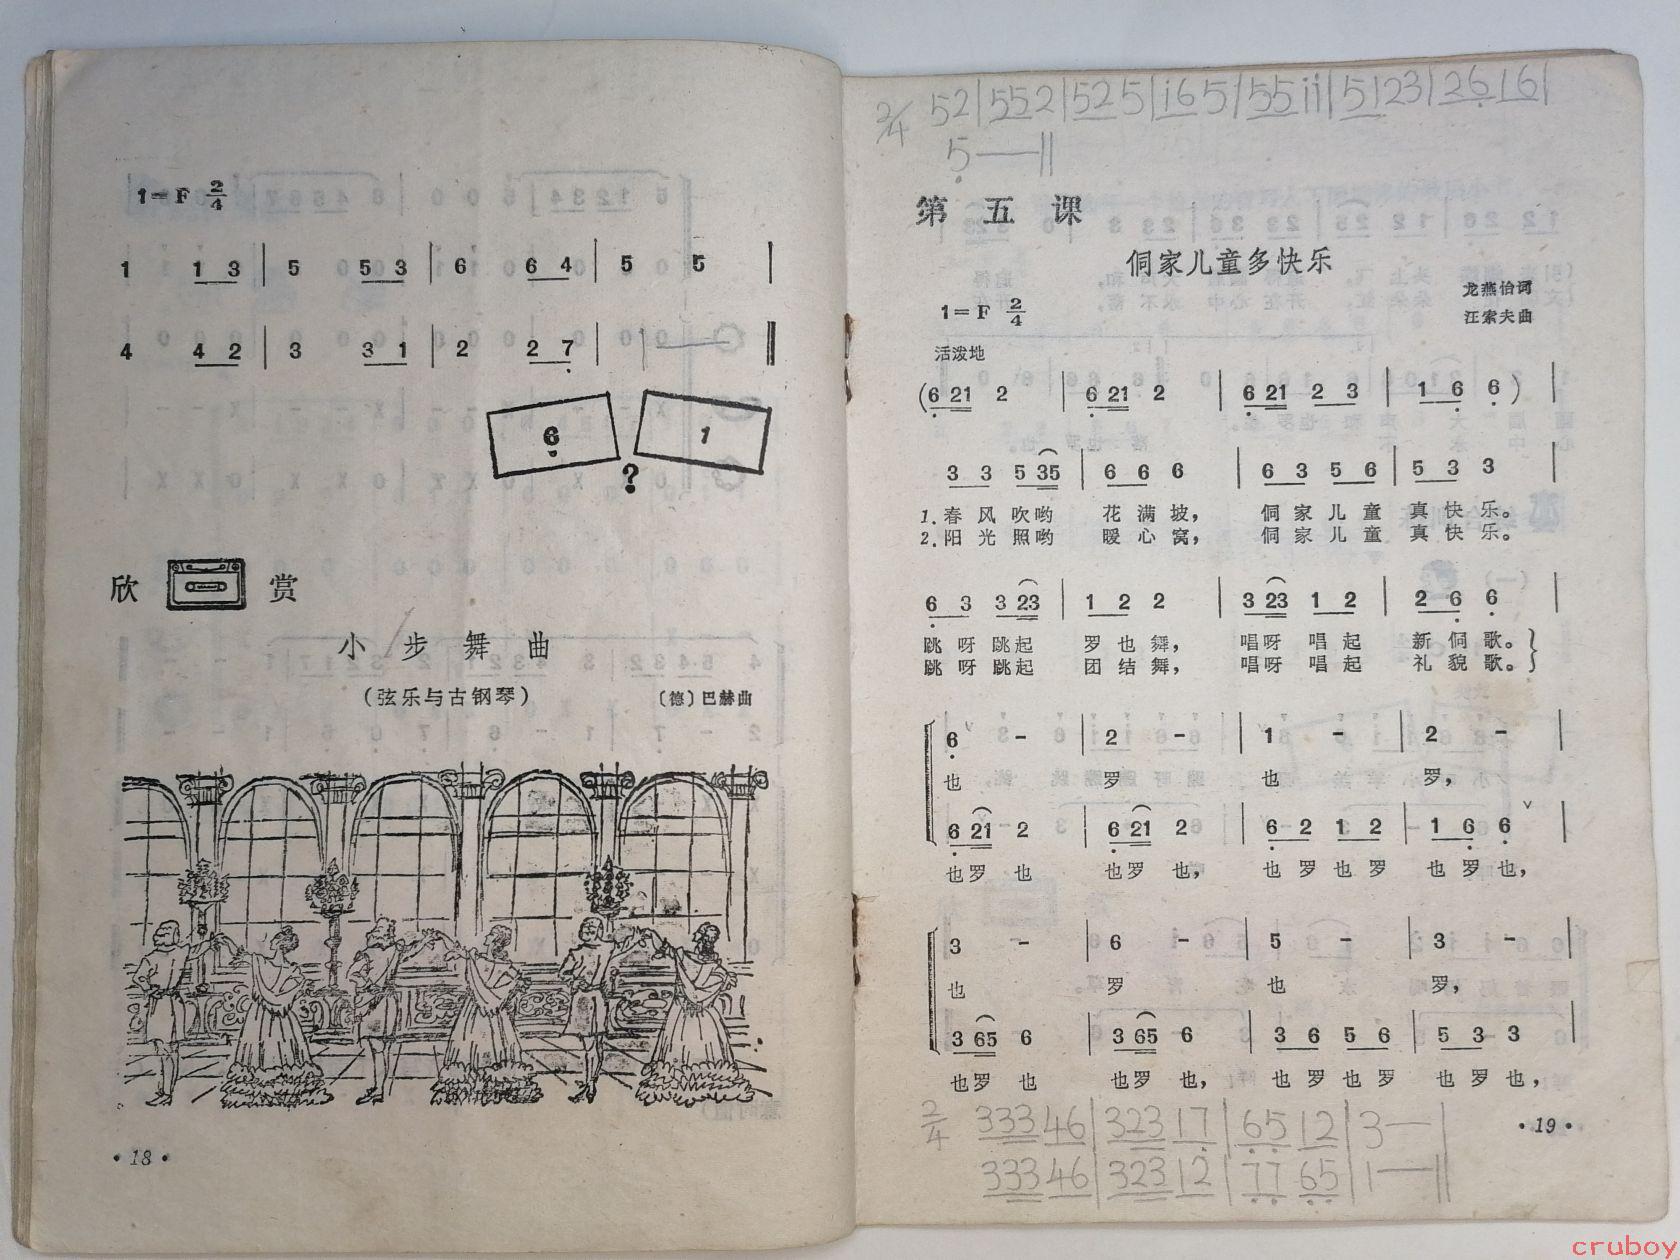 1=F 2/4
1 1 3 | 5 5 3 | 6 6 4 | 5 5 |
4 4 2 | 3 3 1 | 2 2 7̣ | — ‖
6̣ 1
?
欣 赏
小 步 舞 曲
(弦乐与古钢琴) 〔德〕巴赫曲
·18·
2/4 52|552|525|i65|55ii|5123|26̣16̣|
5̣—‖
第 五 课
侗家儿童多快乐
龙燕怡词
1=F 2/4
汪索夫曲
活泼地
(6̣ 21 2 | 6̣ 21 2 | 6̣ 21 2 3 | 1 6̣ 6̣) |
3 3 5 35 | 6 6 6 | 6 3 5 6 | 5 3 3 |
1.春 风 吹哟 花 满 坡, 侗 家 儿 童 真 快 乐。
2.阳 光 照哟 暖 心 窝, 侗 家 儿 童 真 快 乐。
6̣ 3 3 23 | 1 2 2 | 3 23 1 2 | 2 6̣ 6̣ |
跳 呀 跳起 罗 也 舞, 唱呀 唱 起 新 侗 歌。
跳 呀 跳起 团 结 舞, 唱呀 唱 起 礼 貌 歌。
6̣ - | 2 - | 1 - | 2 - |
也 罗 也 罗,
6̣ 21 2 | 6̣ 21 2 | 6̣ 2 1 2 | 1 6̣ 6̣ |
也罗 也 也罗 也, 也 罗 也 罗 也 罗 也,
3 - | 6 - | 5 - | 3 - |
也 罗 也 罗,
3 65 6 | 3 65 6 | 3 6 5 6 | 5 3 3 |
也罗 也 也罗 也, 也 罗 也 罗 也 罗 也,
2/4 333 46|323 17̣|6̣5̣ 12|3—|
·19·
333 46|323 12|7̣7̣ 6̣5̣|1—‖
cruboy